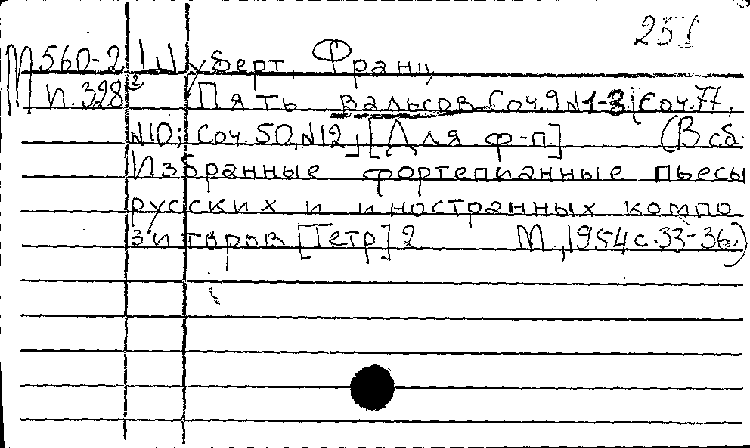 251
М560-2 Шуберт, Франц
П.328 Пять вальсов Соч.9 N1-3; Соч.77,
N10; Соч.50, N12; [Для ф-п] (В сб.
Избранные фортепианные пьесы
русских и иностранных компо
зиторов [Тетр] 2 М., 1954 с.33-36.)